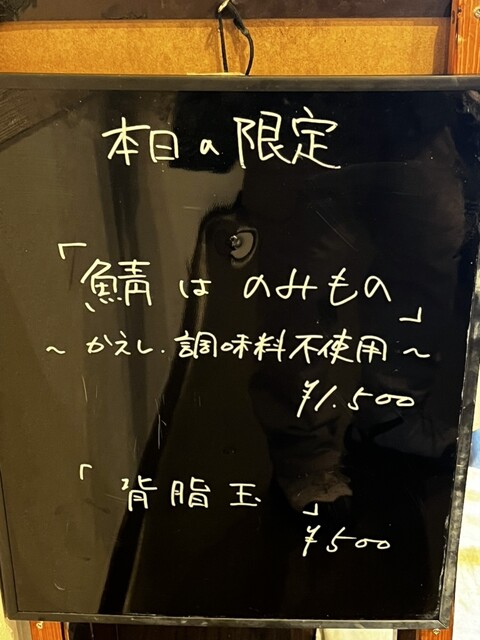 本日の限定
「鯖は のみもの」
～かえし.調味料不使用～
¥1.500
「背脂玉」
¥500